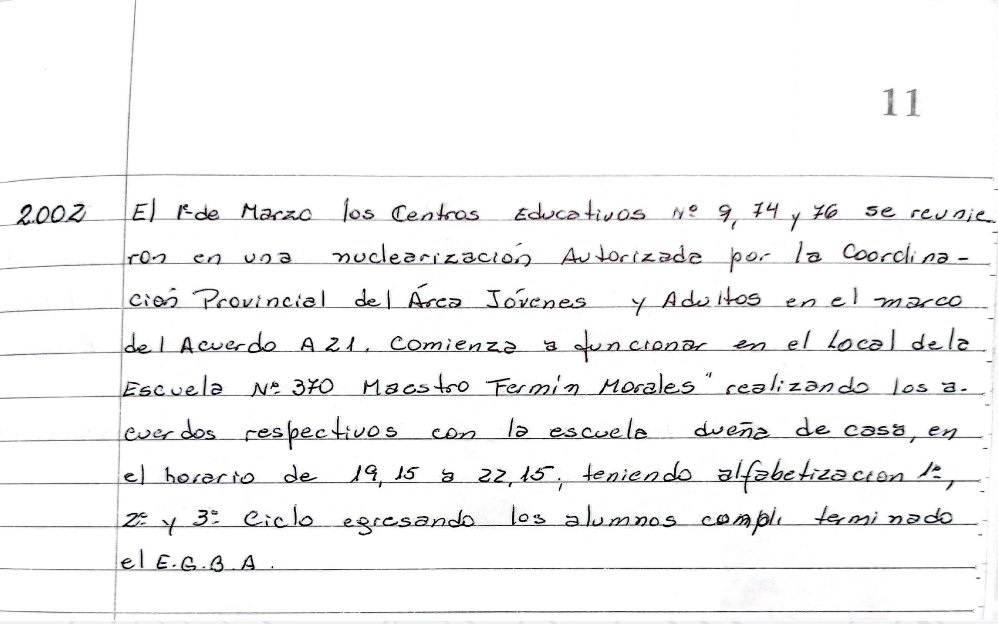 11
2002 El 1º de Marzo los Centros Educativos Nº 9, 74 y 76 se reunie
ron en una nuclearización Autorizada por la Coordina-
ción Provincial del Área Jóvenes y Adultos en el marco
del Acuerdo A 21. Comienza a funcionar en el Local de la
Escuela Nº 370 Maestro Fermín Morales" realizando los a-
cuerdos respectivos con la escuela dueña de casa, en
el horario de 19,15 a 22,15, teniendo alfabetización 1º,
2º y 3º Ciclo egresando los alumnos terminado
el E.G.B.A.